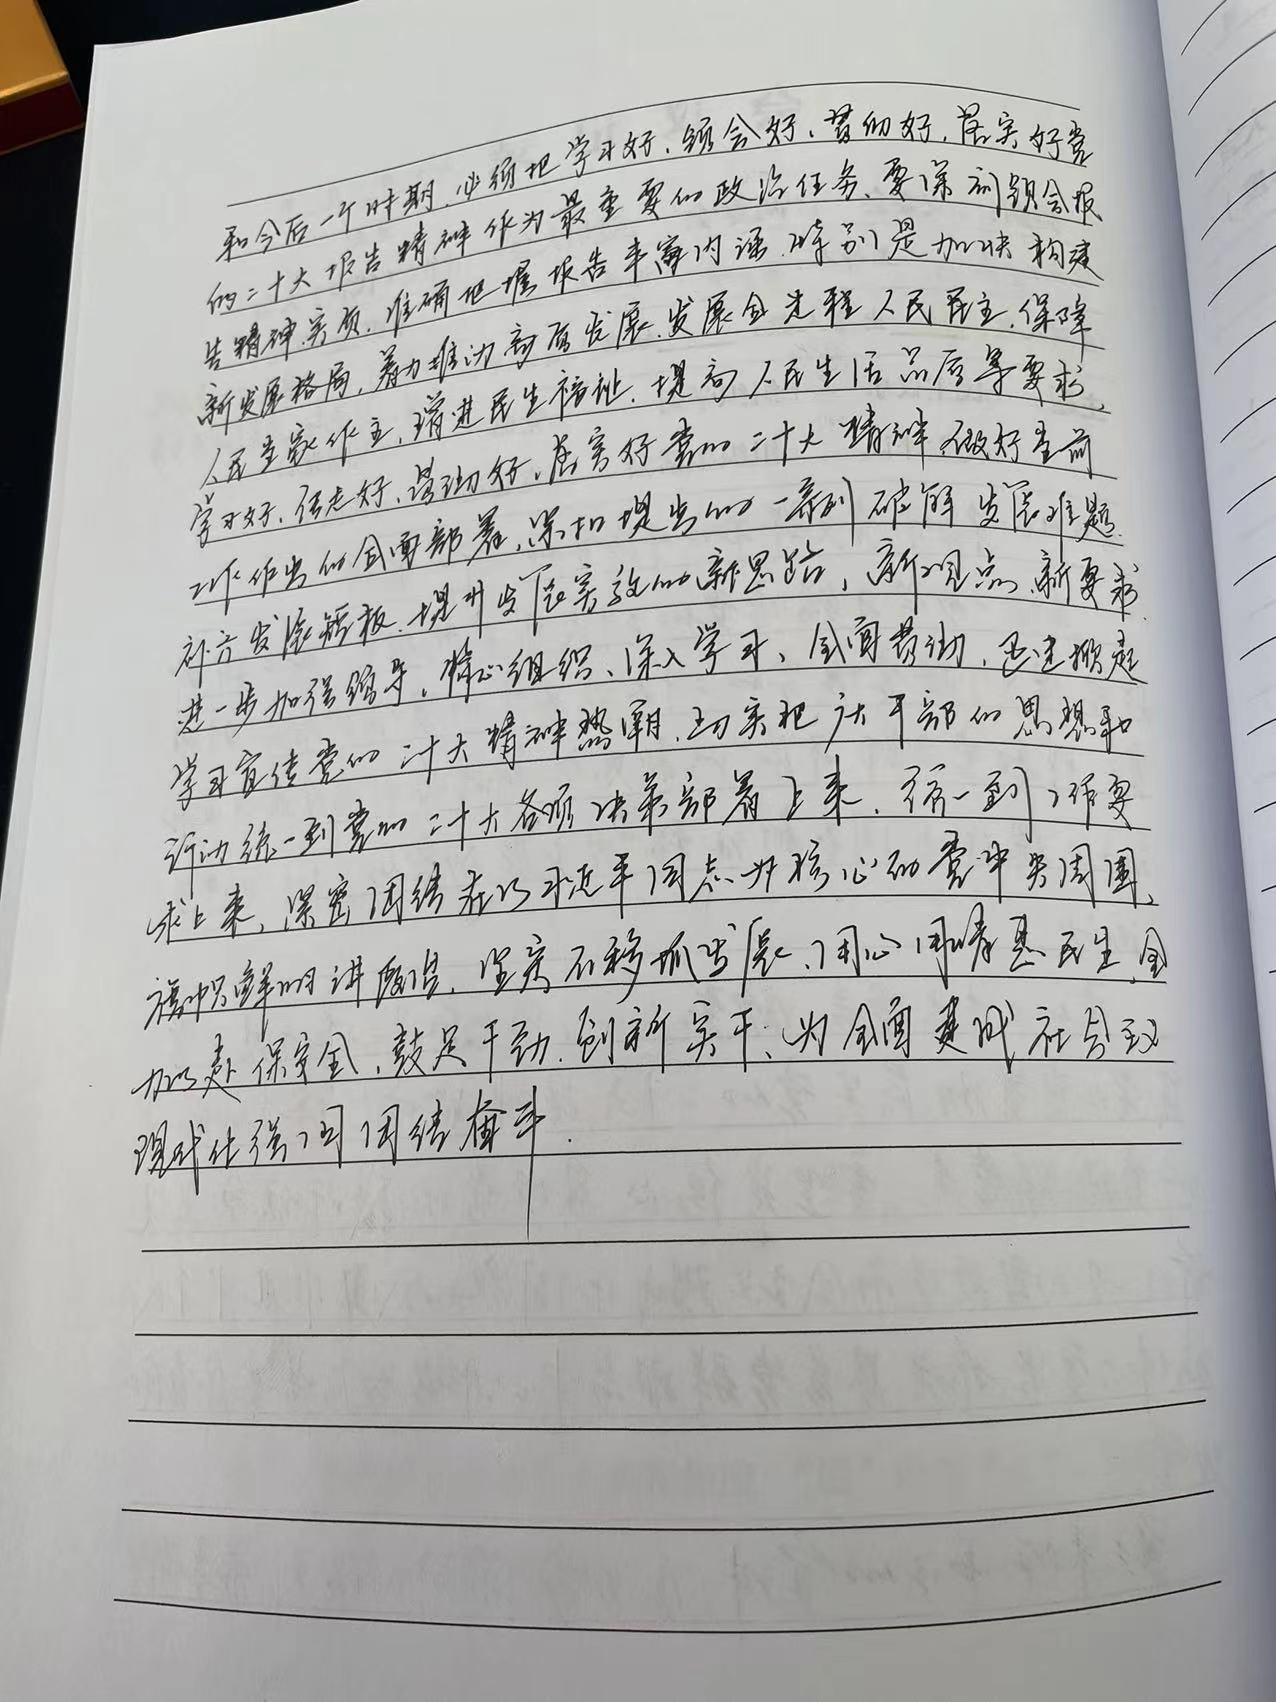 和今后一个时期，必须把学习好、领会好、贯彻好、落实好党
的二十大报告精神作为最重要的政治任务、要深刻领会报
告精神实质，准确把握报告丰富内涵，特别是加快构建
新发展格局，着力推动高质发展、发展全过程人民民主，保障
人民当家作主，增进民生福祉，提高人民生活品质等要求，
学习好、传达好、贯彻好、落实好党的二十大精神，做好当前
工作作出的全面部署，深扣提出的一系列破解发展难题、
补齐发展短板、提升发展实效的新思路，新观点、新要求
进一步加强领导，精心组织、深入学习、全面贯彻，迅速掀起
学习宣传党的二十大精神热潮，切实把广大干部的思想和
行动统一到党的二十大各项决策部署上来，统一到工作要
求上来，深密团结在以习近平同志为核心的党中央周围，
旗帜鲜明讲政治，坚定不移抓发展、用心用情惠民生，全
力以赴保安全，鼓足干劲，创新实干，为全面建成社会主义
现代化强国团结奋斗．